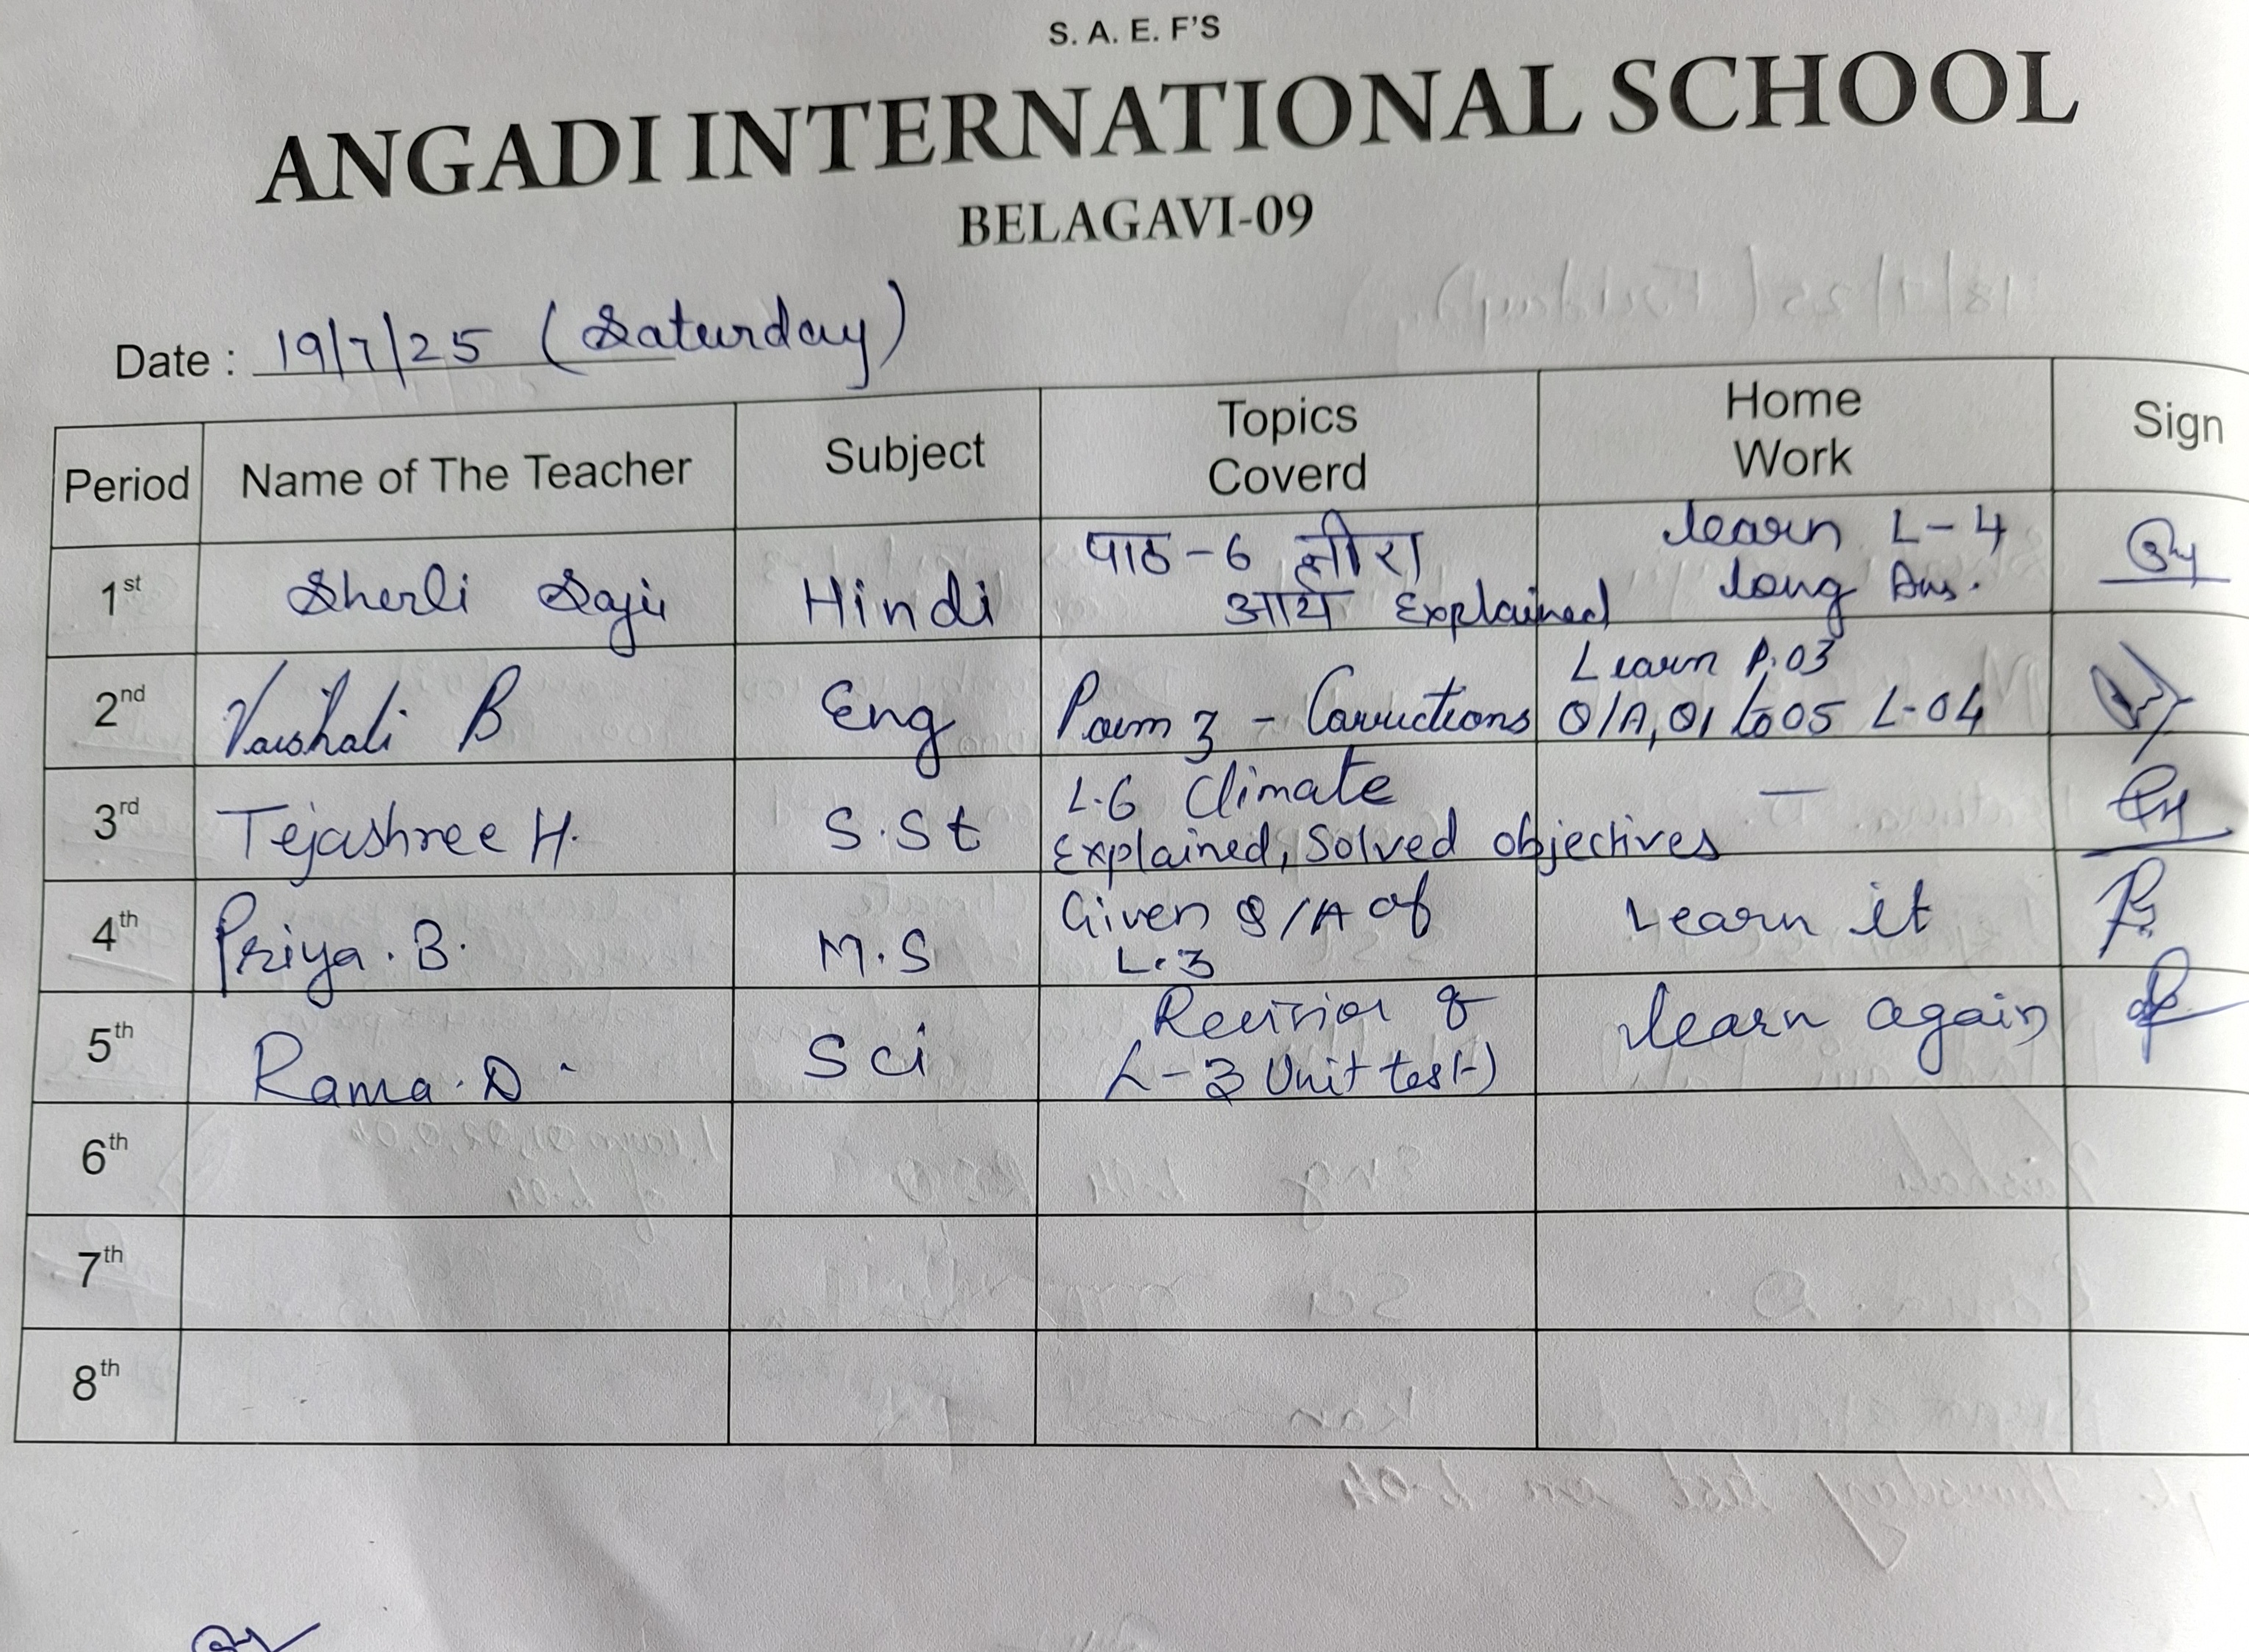 S. A. E. F'S
ANGADI INTERNATIONAL SCHOOL
BELAGAVI-09
Date : 19/7/25 (Saturday)
Period Name of The Teacher Subject Topics Coverd Home Work Sign
1st Sherli Saju Hindi पाठ-6 नीरा आर्य Explained learn L-4 long Ans.
2nd Vaishali B Eng Poem 3 - Corrections Learn P.03 Q/A, Q1 to 05 L-04
3rd Tejashree H. S.St L.6 Climate Explained, Solved objectives —
4th Priya.B. M.S Given Q/A of L.3 Learn it
5th Rama.D. Sci Revision of L-3 Unit test) learn again
6th
7th
8th